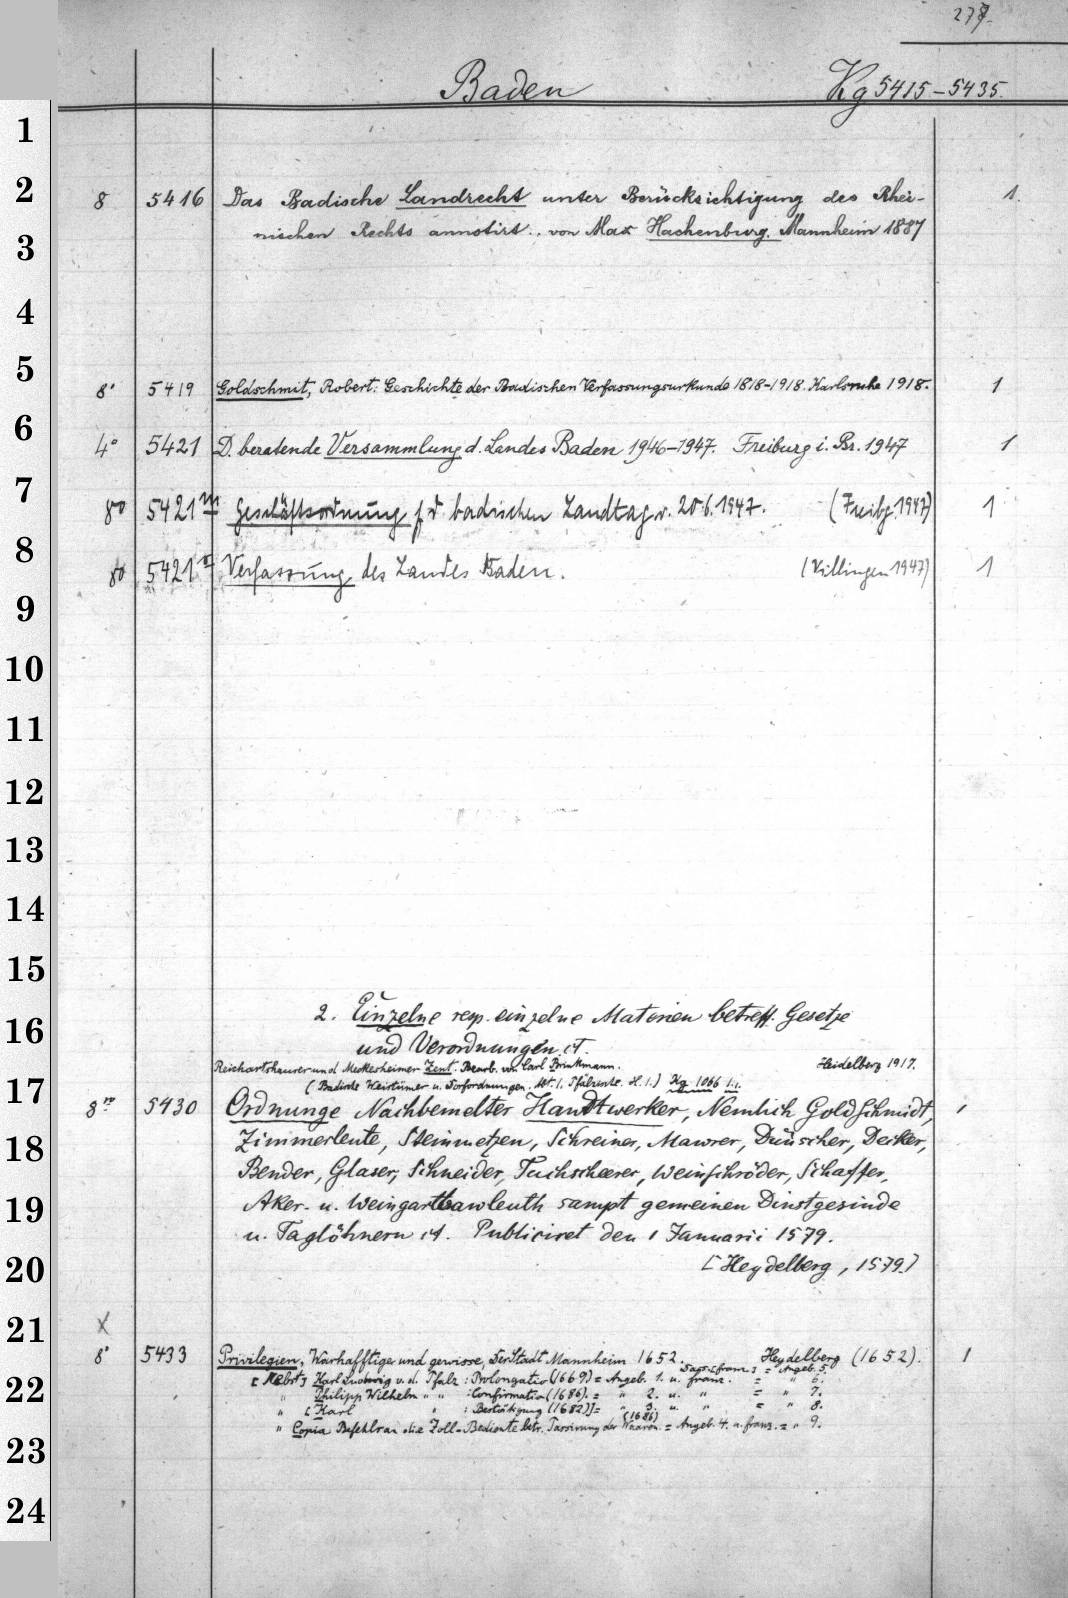 277.
Baden Kg 5415-5435.
1
2
3
4
5
6
7
8
9
10
11
12
13
14
15
16
17
18
19
20
21
22
23
24
8 5416 Das Badische Landrecht unter Berücksichtigung des Rhei- 1.
nischen Rechts annotirt.. von Max Hachenburg. Mannheim 1887
8° 5419 Goldschmit, Robert: Geschichte der Badischen Verfassungsurkunde 1818-1918. Karlsruhe 1918. 1
4° 5421 D. beratende Versammlung d. Landes Baden 1946-1947. Freiburg i. Br. 1947 1
80 5421 m Geschäftsordnung f. d. badischen Landtag v. 20.6.1947. (Freibg. 1947) 1
80 5421 Verfassung des Landes Baden. (Villingen 1947) 1
2. Einzelne resp. einzelne Materien betreff. Gesetze
und Verordnungen et.
Reichartshauser und Meckesheimer Zent. Bearb. von Carl Brinkmann. Heidelberg 1917.
( Badische Weistümer u. Dorfordnungen. Abt. 1. Pfälzische. H. 1.) Kg 1066 1:1.
8° 5430 Ordnunge Nachbemelter Handtwerker, Nemlich Goldschmidt, 1
Zimmerleute, Steinmetzen, Schreiner, Mawrer, Dünscher, Decker,
Bender, Glaser, Schneider, Tuchscherer, Weinschröder, Schaffer,
Aker- u. Weingartbawleuth sampt gemeinen Dinstgesinde
u. Taglöhnern et. Publiciret den 1 Januarii 1579.
[Heydelberg, 1579.)
X
8° 5433 Privilegien, Warhafftige und gewisse, der Stadt Mannheim 1652. Heydelberg (1652). 1
[Nebst] Karl Ludwig v. d. Pfalz: Prolongatio (1669) = Angeb. 1. u. franz. = " 6.
" Philipp Wilhelm " " : Confirmatio (1686). = " 2. u. " = " 7.
" [Karl " : Bestätigung (1682)] = " 3. u. " = " 8.
" Copia Befehls an die Zoll-Bediente betr. Passirung der Waaren (1686) = Angeb. 4. u. franz. = " 9.